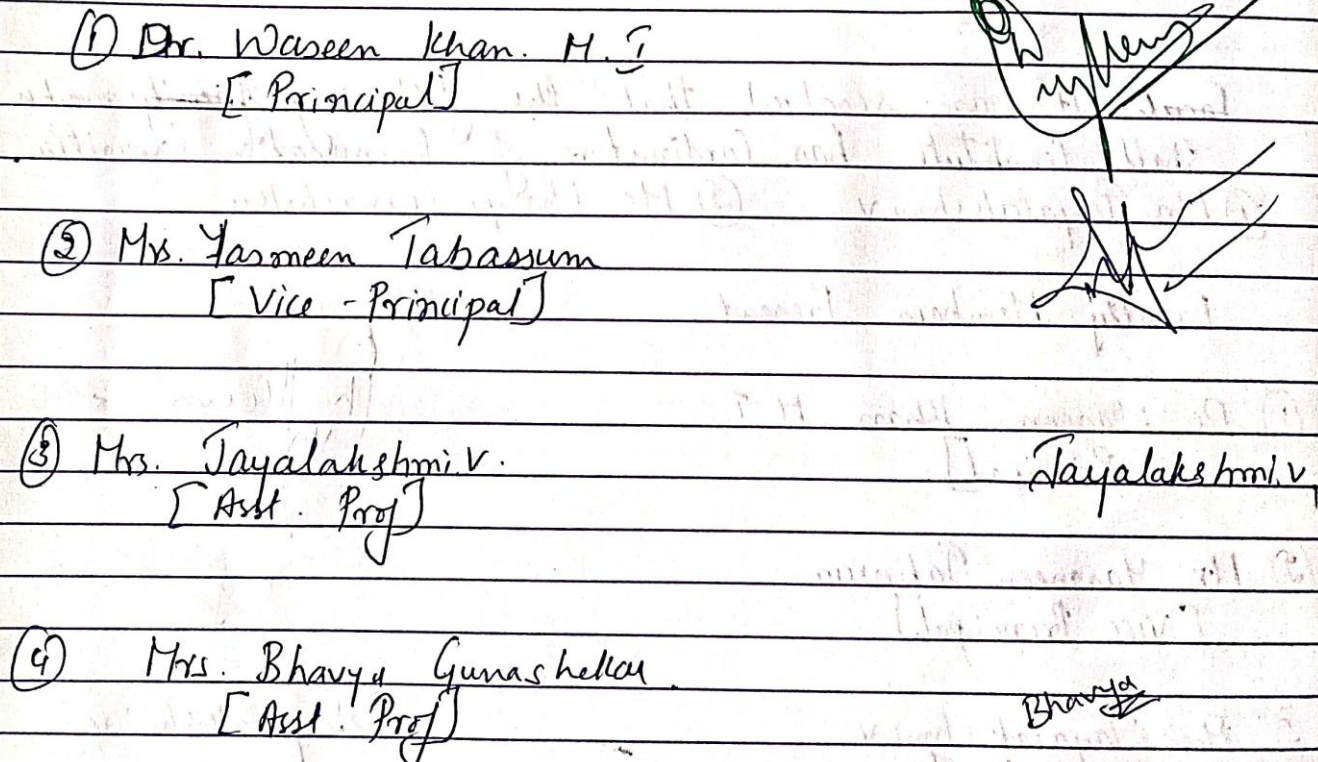 ① Dr. Waseen Khan. M. I
[Principal]
② Mrs. Yasmeen Tabassum
[Vice - Principal]
③ Mrs. Jayalakshmi.V.
Jayalakshmi.V
[Asst. Prof]
④ Mrs. Bhavya Gunashekar.
[Asst. Prof]
Bhavya